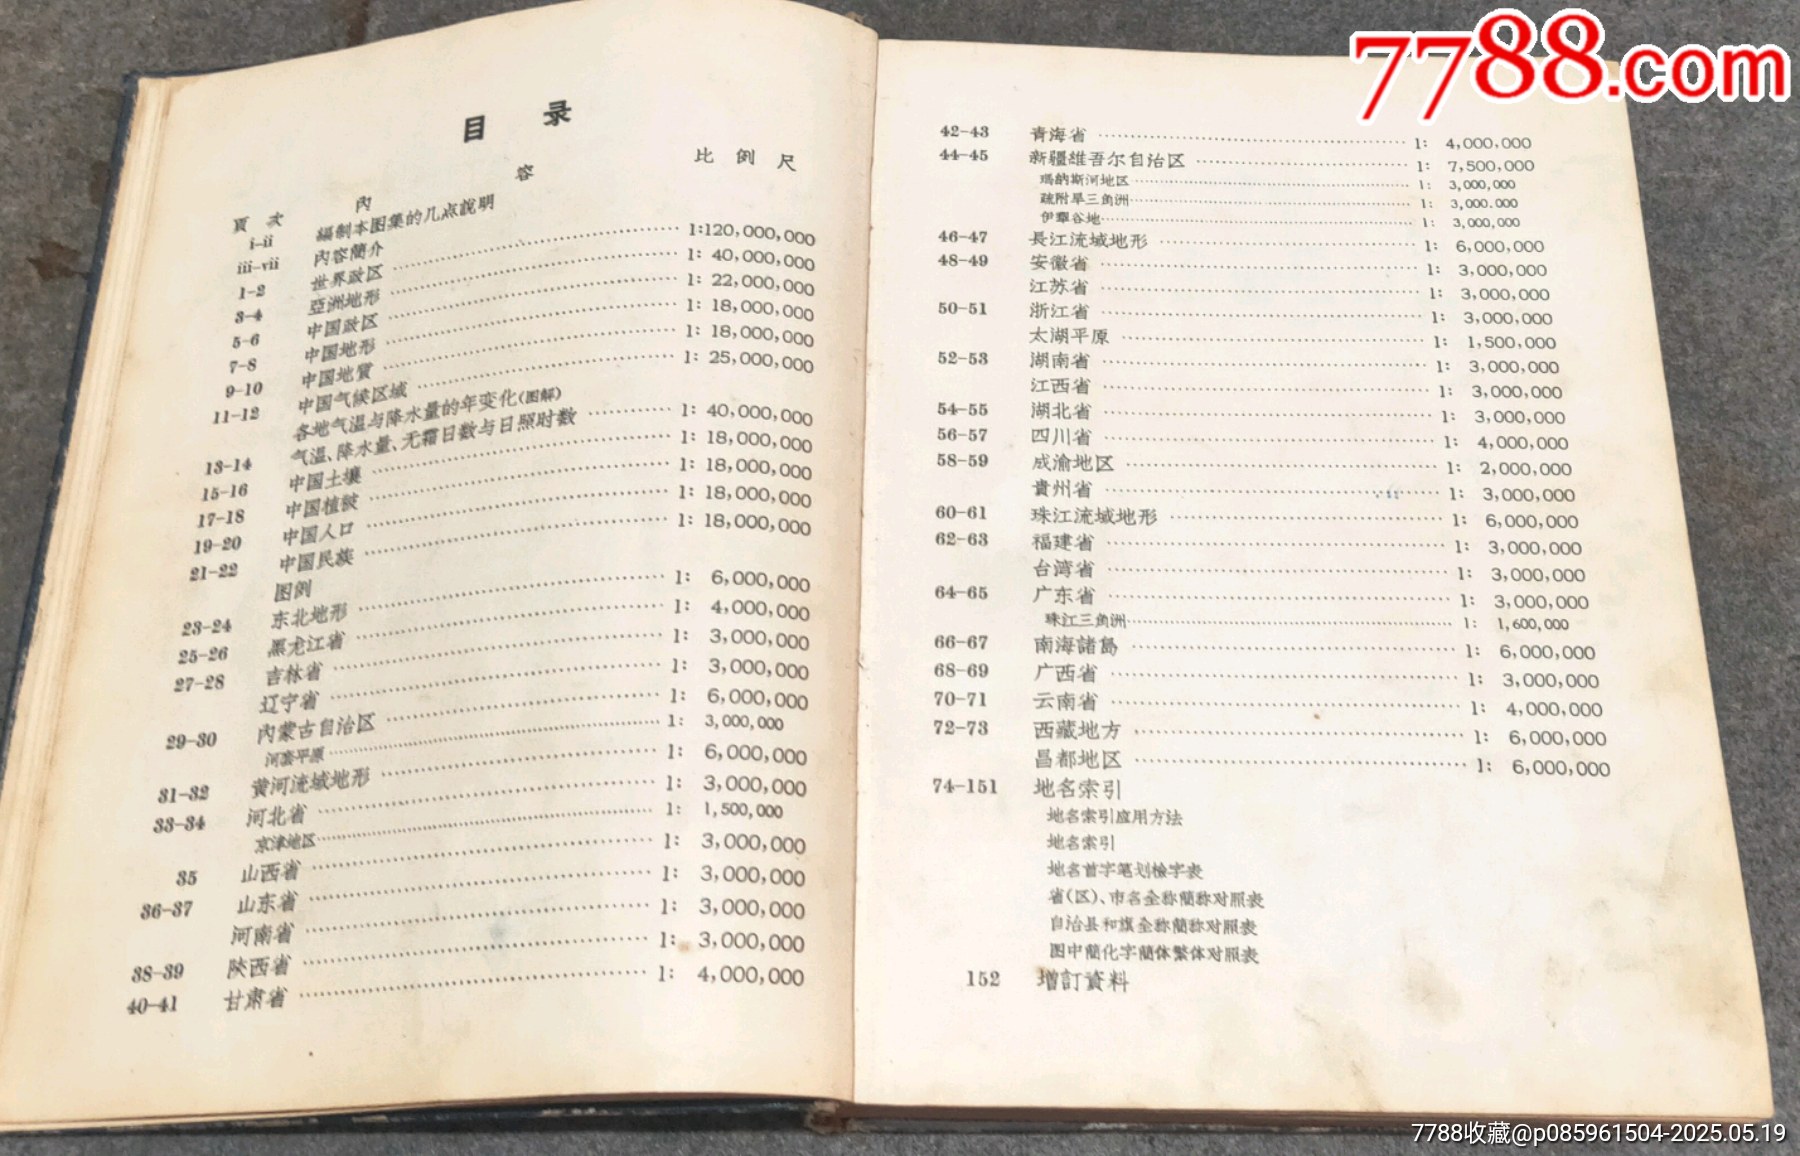 7788.com
目 录
頁 次 內 容 比 例 尺
i-ii 編制本图集的几点說明
iii-vii 內容簡介
1-2 世界政区 1:120,000,000
3-4 亞洲地形 1: 40,000,000
5-6 中国政区 1: 22,000,000
7-8 中国地形 1: 18,000,000
9-10 中国地質 1: 18,000,000
11-12 中国气候区域 1: 25,000,000
各地气温与降水量的年变化(图解)
13-14 气温、降水量、无霜日数与日照时数 1: 40,000,000
15-16 中国土壤 1: 18,000,000
17-18 中国植被 1: 18,000,000
19-20 中国人口 1: 18,000,000
21-22 中国民族 1: 18,000,000
图例
23-24 东北地形 1: 6,000,000
25-26 黑龙江省 1: 4,000,000
27-28 吉林省 1: 3,000,000
辽宁省 1: 3,000,000
29-30 內蒙古自治区 1: 6,000,000
河套平原 1: 3,000,000
31-32 黄河流域地形 1: 6,000,000
33-34 河北省 1: 3,000,000
京津地区 1: 1,500,000
35 山西省 1: 3,000,000
36-37 山东省 1: 3,000,000
河南省 1: 3,000,000
38-39 陕西省 1: 3,000,000
40-41 甘肃省 1: 4,000,000
42-43 青海省 1: 4,000,000
44-45 新疆維吾尔自治区 1: 7,500,000
瑪納斯河地区 1: 3,000,000
疏附旱三角洲 1: 3,000.000
伊犂谷地 1: 3,000,000
46-47 長江流域地形 1: 6,000,000
48-49 安徽省 1: 3,000,000
江苏省 1: 3,000,000
50-51 浙江省 1: 3,000,000
太湖平原 1: 1,500,000
52-53 湖南省 1: 3,000,000
江西省 1: 3,000,000
54-55 湖北省 1: 3,000,000
56-57 四川省 1: 4,000,000
58-59 成渝地区 1: 2,000,000
貴州省 1: 3,000,000
60-61 珠江流域地形 1: 6,000,000
62-63 福建省 1: 3,000,000
台湾省 1: 3,000,000
64-65 广东省 1: 3,000,000
珠江三角洲 1: 1,600,000
66-67 南海諸島 1: 6,000,000
68-69 广西省 1: 3,000,000
70-71 云南省 1: 4,000,000
72-73 西藏地方 1: 6,000,000
昌都地区 1: 6,000,000
74-151 地名索引
地名索引应用方法
地名索引
地名首字笔划檢字表
省(区)、市名全称簡称对照表
自治县和旗全称簡称对照表
图中簡化字簡体繁体对照表
152 增訂資料
7788收藏@p085961504-2025.05.19